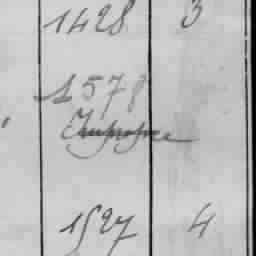 1428 3
1578
1527 4